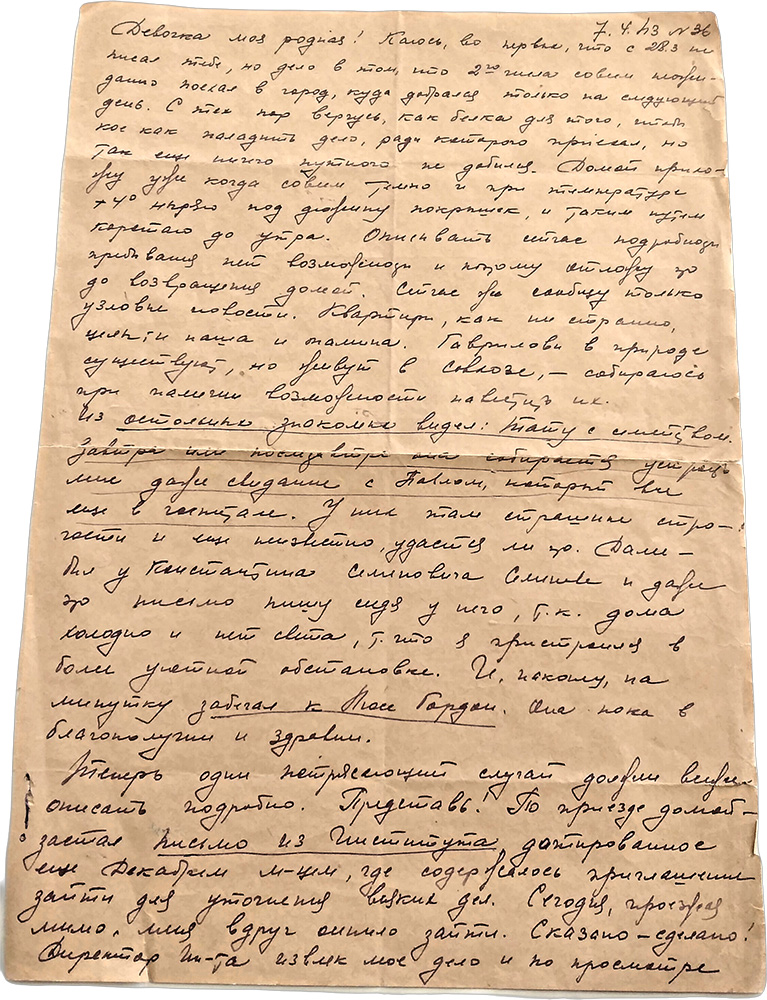 7.4.43 №36
Девочка моя родная! Каюсь, во первых, что с 28.3 не
писал тебе, но дело в том, что 2го числа совсем неожи-
данно поехал в город, куда добрался только на следующий
день. С тех пор верчусь, как белка для того, чтобы
кое как наладить дело, ради которого приехал, но
так еще ничего путного не добился. Домой прихо-
жу уже когда совсем темно и при температуре
+4° ныряю под дюжину покрышек, и таким путем
коротаю до утра. Описывать сейчас подробности
пребывания нет возможности и потому отложу это
до возвращения домой. Сейчас же сообщу только
узловые новости. Квартиры, как ни странно,
целы и наша и мамина. Гавриловы в природе
существуют, но живут в совхозе, – собираюсь
при наличии возможности навестить их.
Из остальных знакомых видел: Тату с семейством.
Завтра или послезавтра она собирается устроить
мне даже свидание с Павлом, который все
еще в госпитале. У них там страшные стро-
гости и еще неизвестно, удастся ли это. Далее –
был у Константина Семеновича и даже
это письмо пишу сидя у него, т.к. дома
холодно и нет света, т.что я пристроился в
более уютной обстановке. И, наконец, на
минутку забегал к Люсе Гордон. Она пока в
благополучии и здравии.
Теперь один потрясающий случай должен
описать подробно. Представь! По приезде домой –
застал письмо из Института, датированное
еще Декабрем м-цем, где содержалось приглашение
зайти для уточнения всяких дел. Сегодня, проезжая
мимо, меня вдруг осенило зайти. Сказано – сделано!
Директор Ин-та извлек мое дело и по просмотре